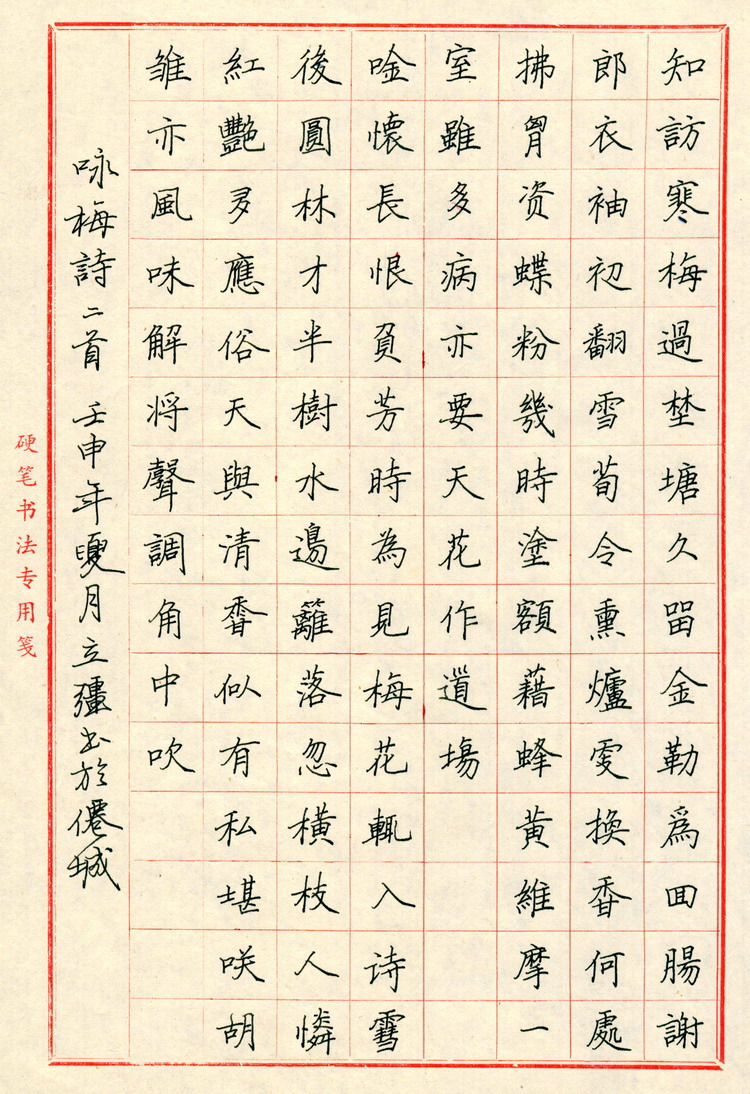 知訪寒梅過埜塘久留金勒為回腸謝
郎衣袖初翻雪荀令熏爐更換香何處
拂胷资蝶粉幾時塗額藉蜂黄維摩一
室雖多病亦要天花作道場
唫懷長恨負芳時為見梅花輒入诗雪
後園林才半樹水邊籬落忽橫枝人憐
紅艷多應俗天與清香似有私堪咲胡
雏亦風味解将聲調角中吹
咏梅詩二首 壬申年夏月立疆书於僊城
硬笔书法专用笺